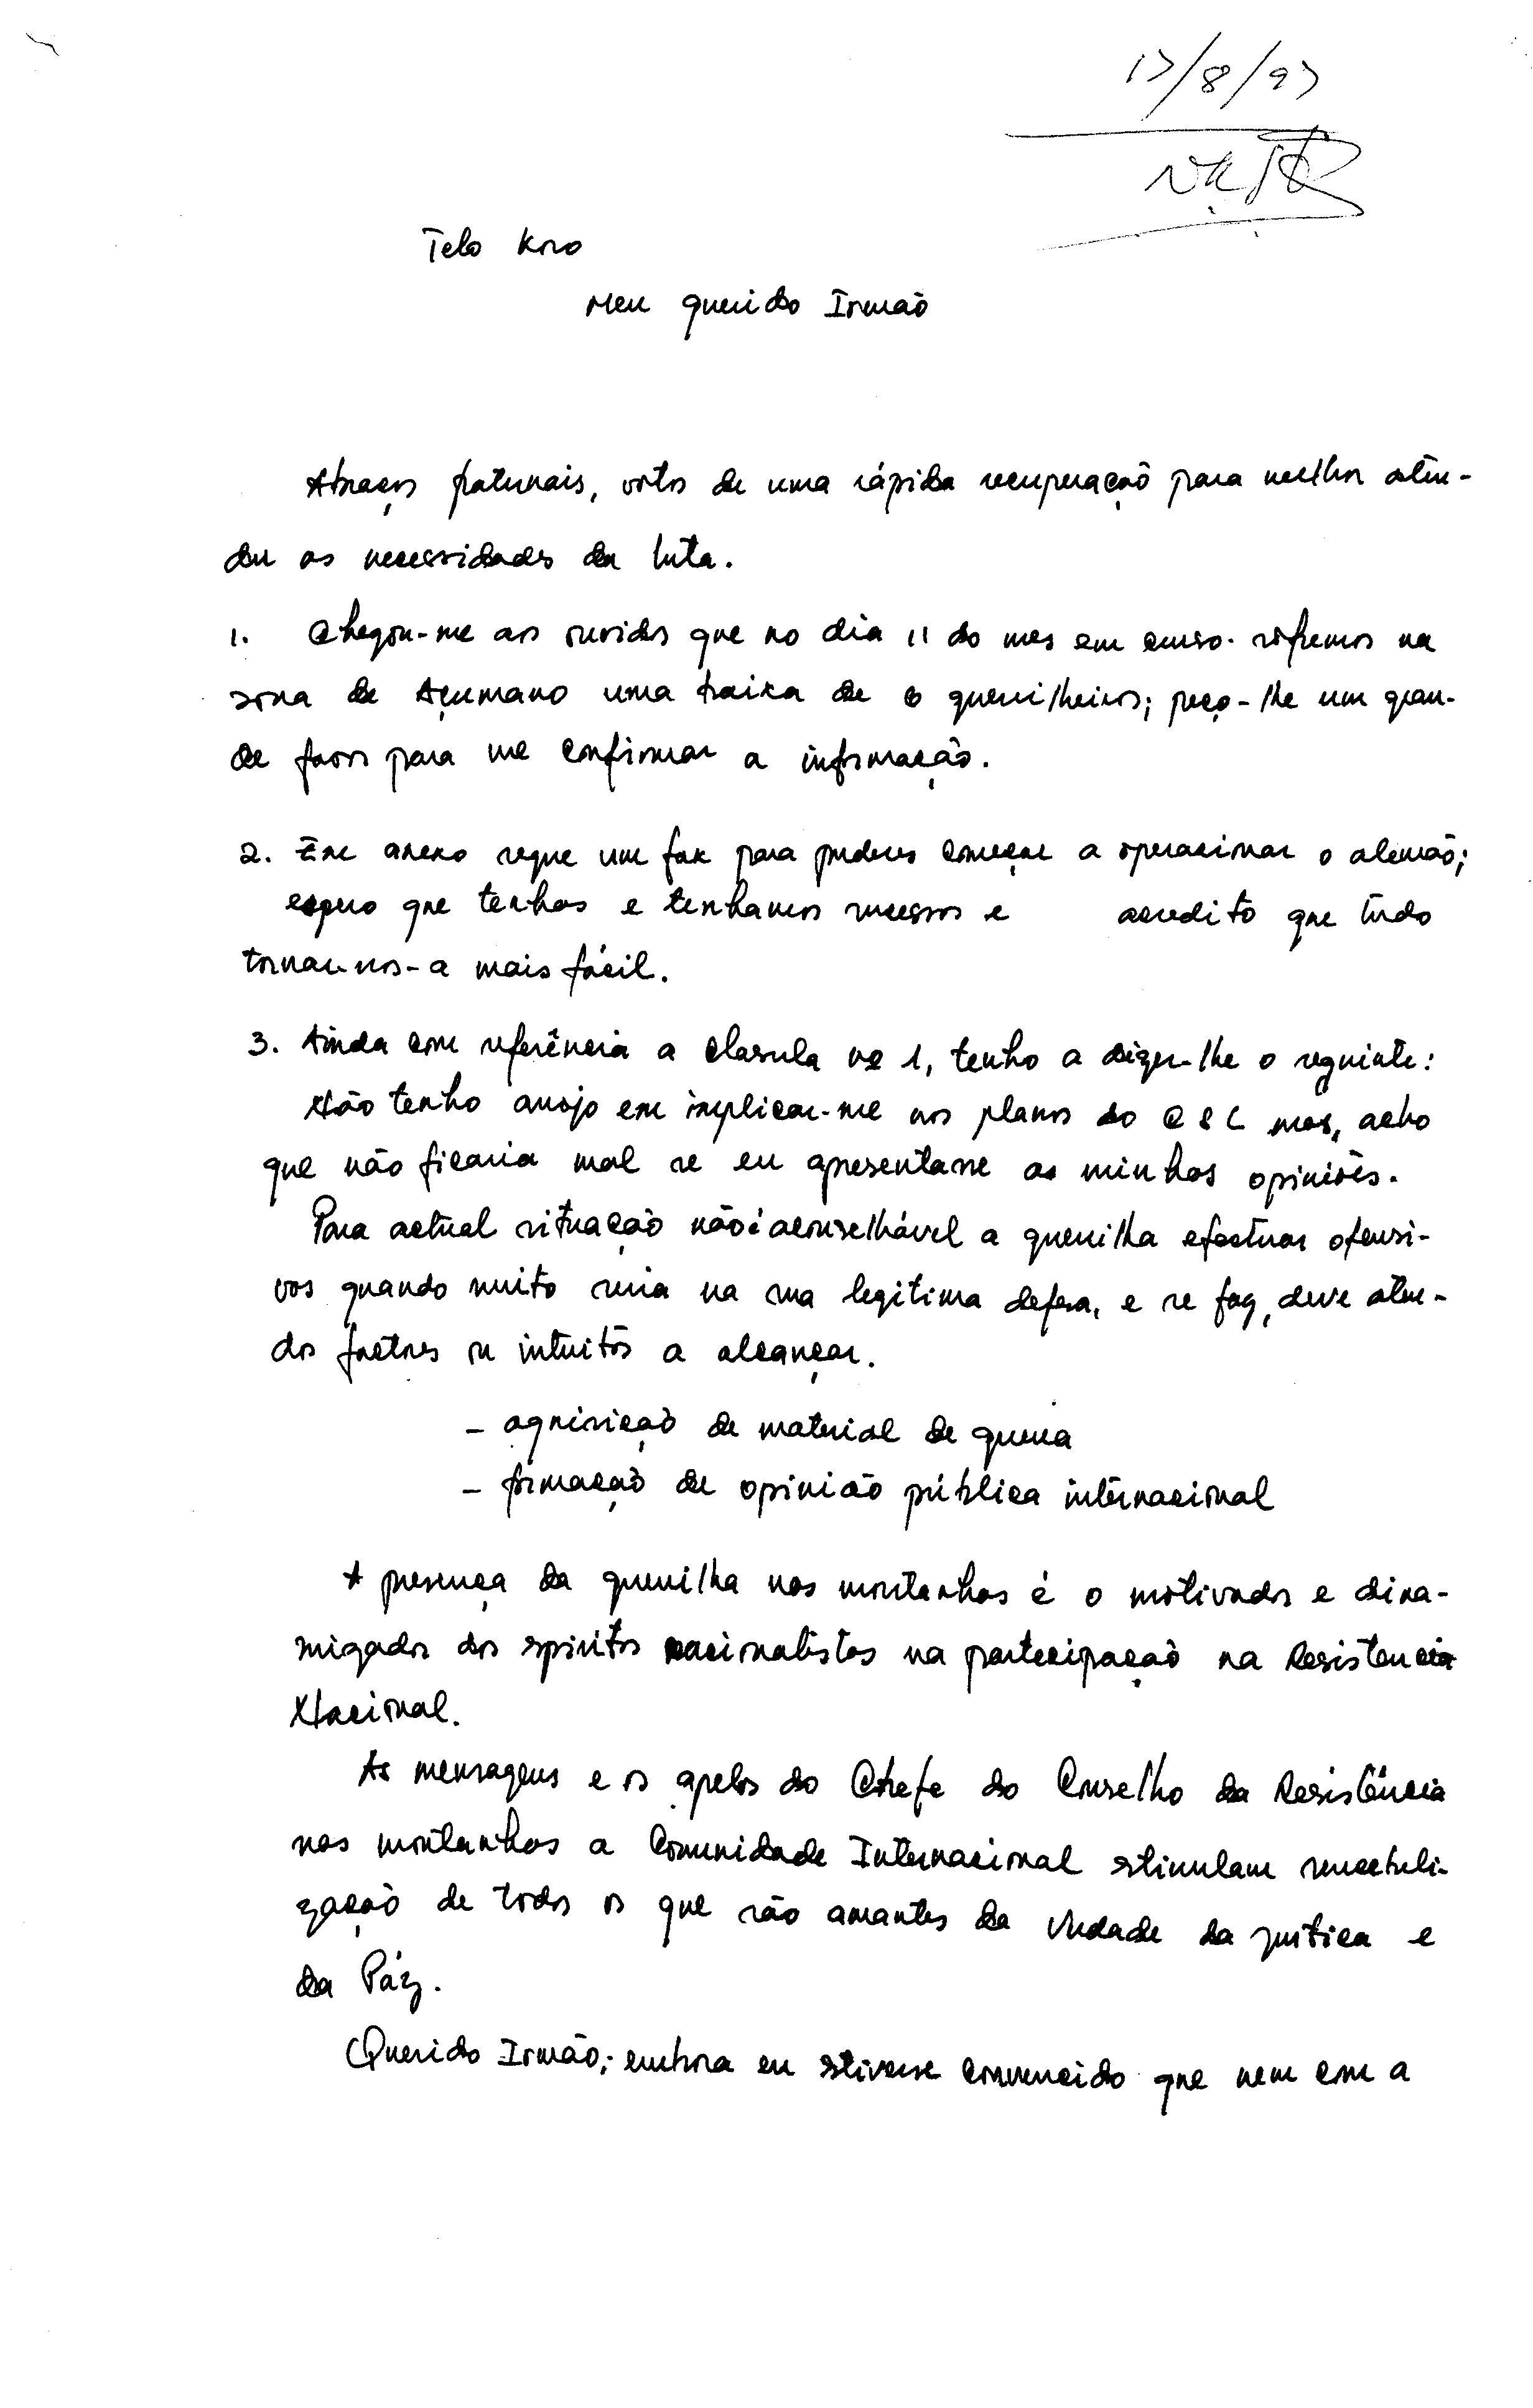 17/8/97
Telo Kno
Meu querido Irmão
Abraços fraternais, votos de uma rápida recuperação para melhor aten-
der as necessidades da luta.
1. Chegou-me aos ouvidos que no dia 11 do mes em curso sofremos na
zona de Açumano uma baixa de 6 guerrilheiros; peço-lhe um gran-
de favor para me confirmar a informação.
2. Em anexo segue um fax para puderes começar a operacionar o alemão;
espero que tenhas e tenhamos sucessos e acredito que tudo
tornar-nos-a mais fácil.
3. Ainda com referência a clasula nº 1, tenho a dizer-lhe o seguinte:
Não tenho arrojo em implicar-me nos planos do mas, acho
que não ficaria mal se eu apresentasse as minhas opiniões.
Para actual situação não é aconselhável a guerrilha efectuar ofensi-
vas quando muito seria na sua legitima defesa, e se faz, deve aten-
dos factores ou intuitos a alcançar.
- aquisição de material de guerra
- formação de opinião pública internacional
A presença da guerrilha nas montanhas é o motivador e dina-
mizador dos espiritos nacionalistas na partecipação na Resistencia
Nacional.
As mensagens e os apelos do Chefe do Conselho da Resistência
nas montanhas a Comunidade Internacional estimulam
zação de todos os que são amantes da Verdade da justiça e
da Páz.
Querido Irmão; embora eu estivesse convencido que nem com a